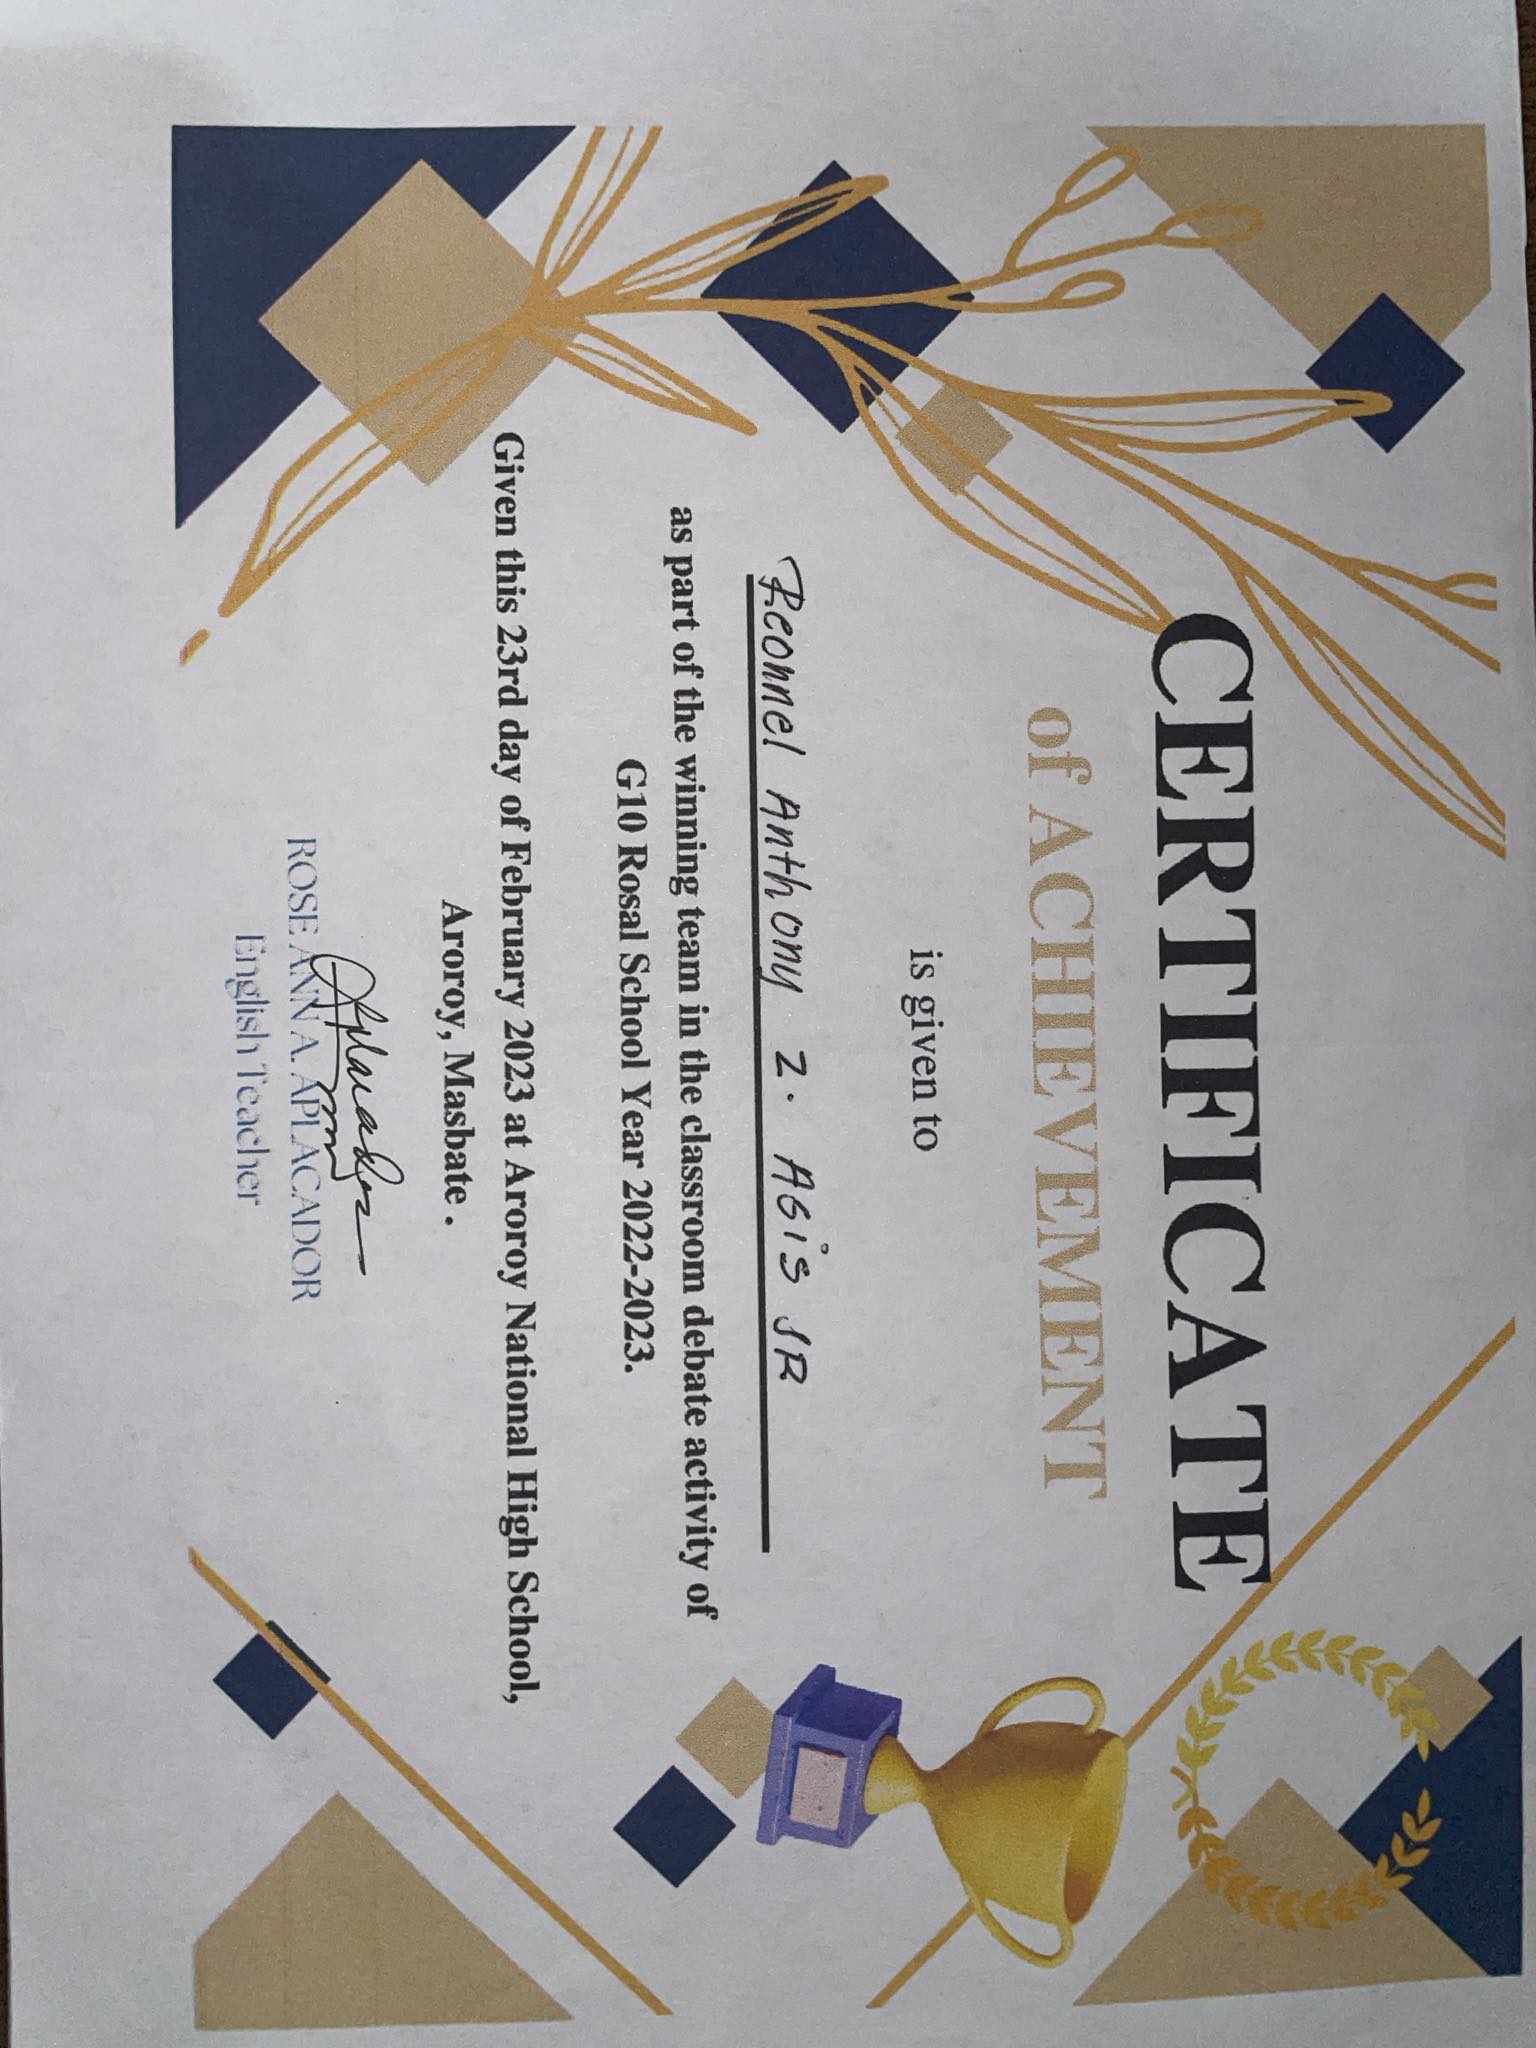 CERTIFICATE
of ACHIEVEMENT
is given to
Reonnel Anthony Z. AGiS JR
as part of the winning team in the classroom debate activity of
G10 Rosal School Year 2022-2023.
Given this 23rd day of February 2023 at Aroroy National High School,
Aroroy, Masbate .
ROSE ANN A. APLACADOR
English Teacher